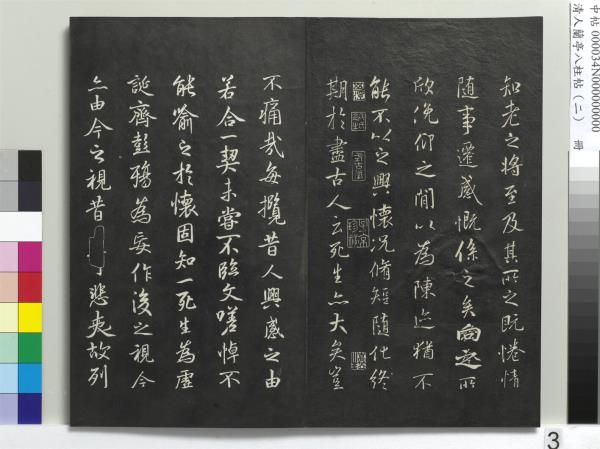 知老之將至及其所之既惓情
隨事遷感慨係之矣向之所
欣俛仰之閒以為陳迹猶不
能不以之興懷況脩短隨化終
期於盡古人云死生亦大矣豈
不痛哉每攬昔人興感之由
若合一契未嘗不臨文嗟悼不
能喻之於懷固知一死生為虛
誕齊彭殤為妄作後之視今
亦由今之視昔 悲夫故列
中帖 000034N000000000
清人蘭亭八柱帖(二) 冊
3